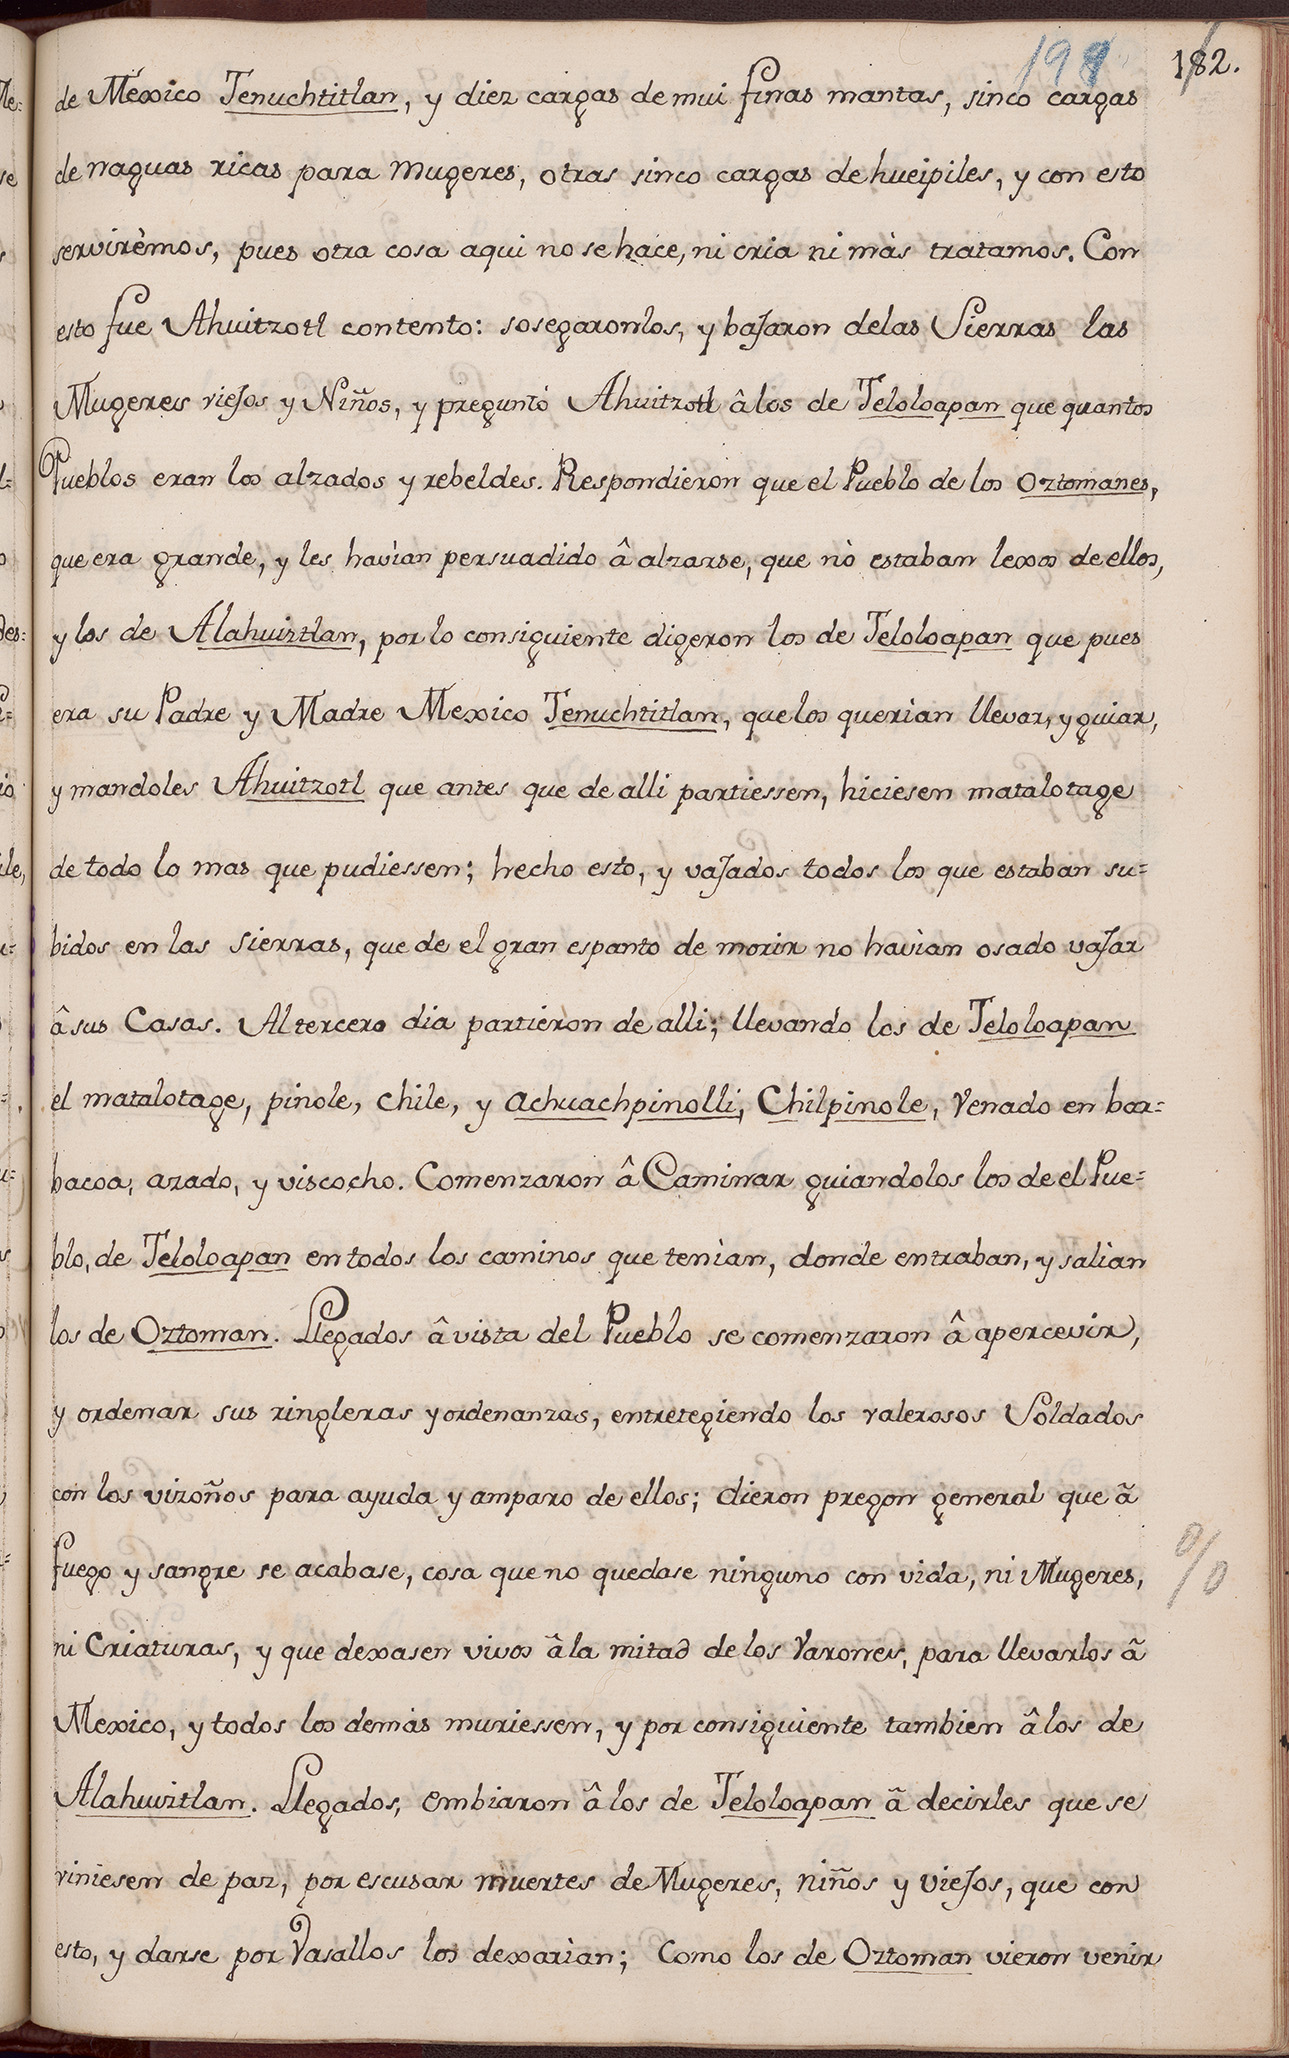 191
182.
de Mexico Tenuchtitlan, y diez cargas de mui finas mantas, sinco cargas
de naguas ricas para Mugeres, otras sinco cargas de hueipiles, y con esto
servirèmos, pues otra cosa aqui no se hace, ni cria ni màs tratamos. Con
esto fue Ahuitzotl contento: sosegaronlos, y baJaron delas Sierras las
Mugeres vieJos y Niños, y preguntò Ahuitzotl âlos de Teloloapan que quantos
Pueblos eran los alzados y rebeldes. Respondieron que el Pueblo de los Oztomanes,
que era grande, y les havian persuadido â alzarse, que nò estaban lexos de ellos,
y los de Alahuiztlan, por lo consiguiente digeron los de Teloloapan que pues
era su Padre y Madre Mexico Tenuchtitlan, que los querìan llevar, y guiar,
y mandoles Ahuitzotl que antes que de alli partiessen, hiciesen matalotage
de todo lo mas que pudiessen; hecho esto, y vaJados todos los que estaban su=
bidos en las sierras, que de el gran espanto de morir no havìan osado vaJar
â sus Casas. Al tercero dia partieron de alli; llevando los de Teloloapan
el matalotage, pinole, chile, y achuachpinolli, Chilpinole, Venado en bar=
bacoa, azado, y viscocho. Comenzaron â Caminar guiandolos los de el Pue=
blo, de Teloloapan en todos los caminos que tenìan, donde entraban, y salìan
los de Oztoman. Llegados â vista del Pueblo se comenzaron â apercevir,
y ordenar sus ringleras y ordenanzas, entretegiendo los valerosos Soldados
con los vizoños para ayuda y amparo de ellos; dieron pregon general que ã
fuego y sangre se acabase, cosa que no quedase ninguno con vida, ni Mugeres,
ni Criaturas, y que dexasen vivos â la mitad de los Varones, para llevarlos ã
Mexico, y todos los demàs muriessen, y por consiguiente tambien â los de
Alahuiztlan. Llegados, embiaron â los de Teloloapan ã decirles que se
viniesen de paz, por escusar muertes de Mugeres, niños y vieJos, que con
esto, y darse por Vasallos los dexarìan; Como los de Oztoman vieron venir